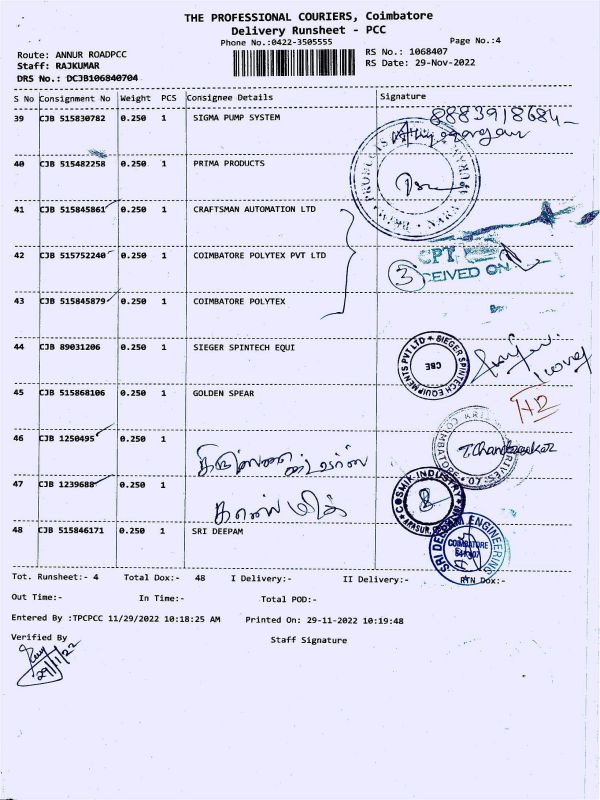 THE PROFESSIONAL COURIERS, Coimbatore
Delivery Runsheet - PCC
Phone No.:0422-3505555
Page No.:4
Route: ANNUR ROADPCC
RS No.: 1068407
Staff: RAJKUMAR
RS Date: 29-Nov-2022
DRS No.: DCJB106840704
S No Consignment No Weight PCS Consignee Details Signature
39 CJB 515830782 0.250 1 SIGMA PUMP SYSTEM 8883918684
40 CJB 515482258 0.250 1 PRIMA PRODUCTS
41 CJB 515845861 0.250 1 CRAFTSMAN AUTOMATION LTD
42 CJB 515752240 0.250 1 COIMBATORE POLYTEX PVT LTD
3 CEIVED ON
43 CJB 515845879 0.250 1 COIMBATORE POLYTEX
44 CJB 89031206 0.250 1 SIEGER SPINTECH EQUI
SIEGER SPINTECH EQUIPMENTS PVT LTD
CBE
45 CJB 515868106 0.250 1 GOLDEN SPEAR
46 CJB 1250495 0.250 1
T.Chandrasekar
47 CJB 1239688 0.250 1
COSMIK INDUSTRY
48 CJB 515846171 0.250 1 SRI DEEPAM
SRI DEEPAM ENGINEERING
COIMBATORE
Tot. Runsheet:- 4 Total Dox:- 48 I Delivery:- II Delivery:- RTN Dox:-
Out Time:- In Time:- Total POD:-
Entered By :TPCPCC 11/29/2022 10:18:25 AM Printed On: 29-11-2022 10:19:48
Verified By Staff Signature
29/11/22